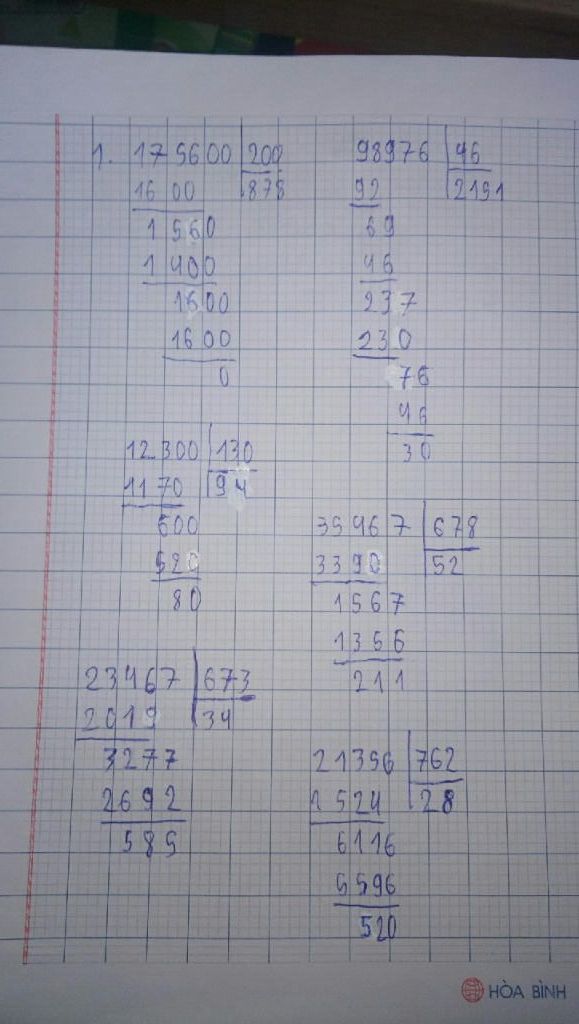 1. 175600 200
1600 878
1560
1400
1600
1600
0
98976 46
92 2151
69
46
237
230
76
46
30
12300 130
1170 94
600
520
80
35467 678
3390 52
1567
1356
211
23467 673
2019 34
3277
2692
585
21356 762
1524 28
6116
5596
520
HÒA BÌNH